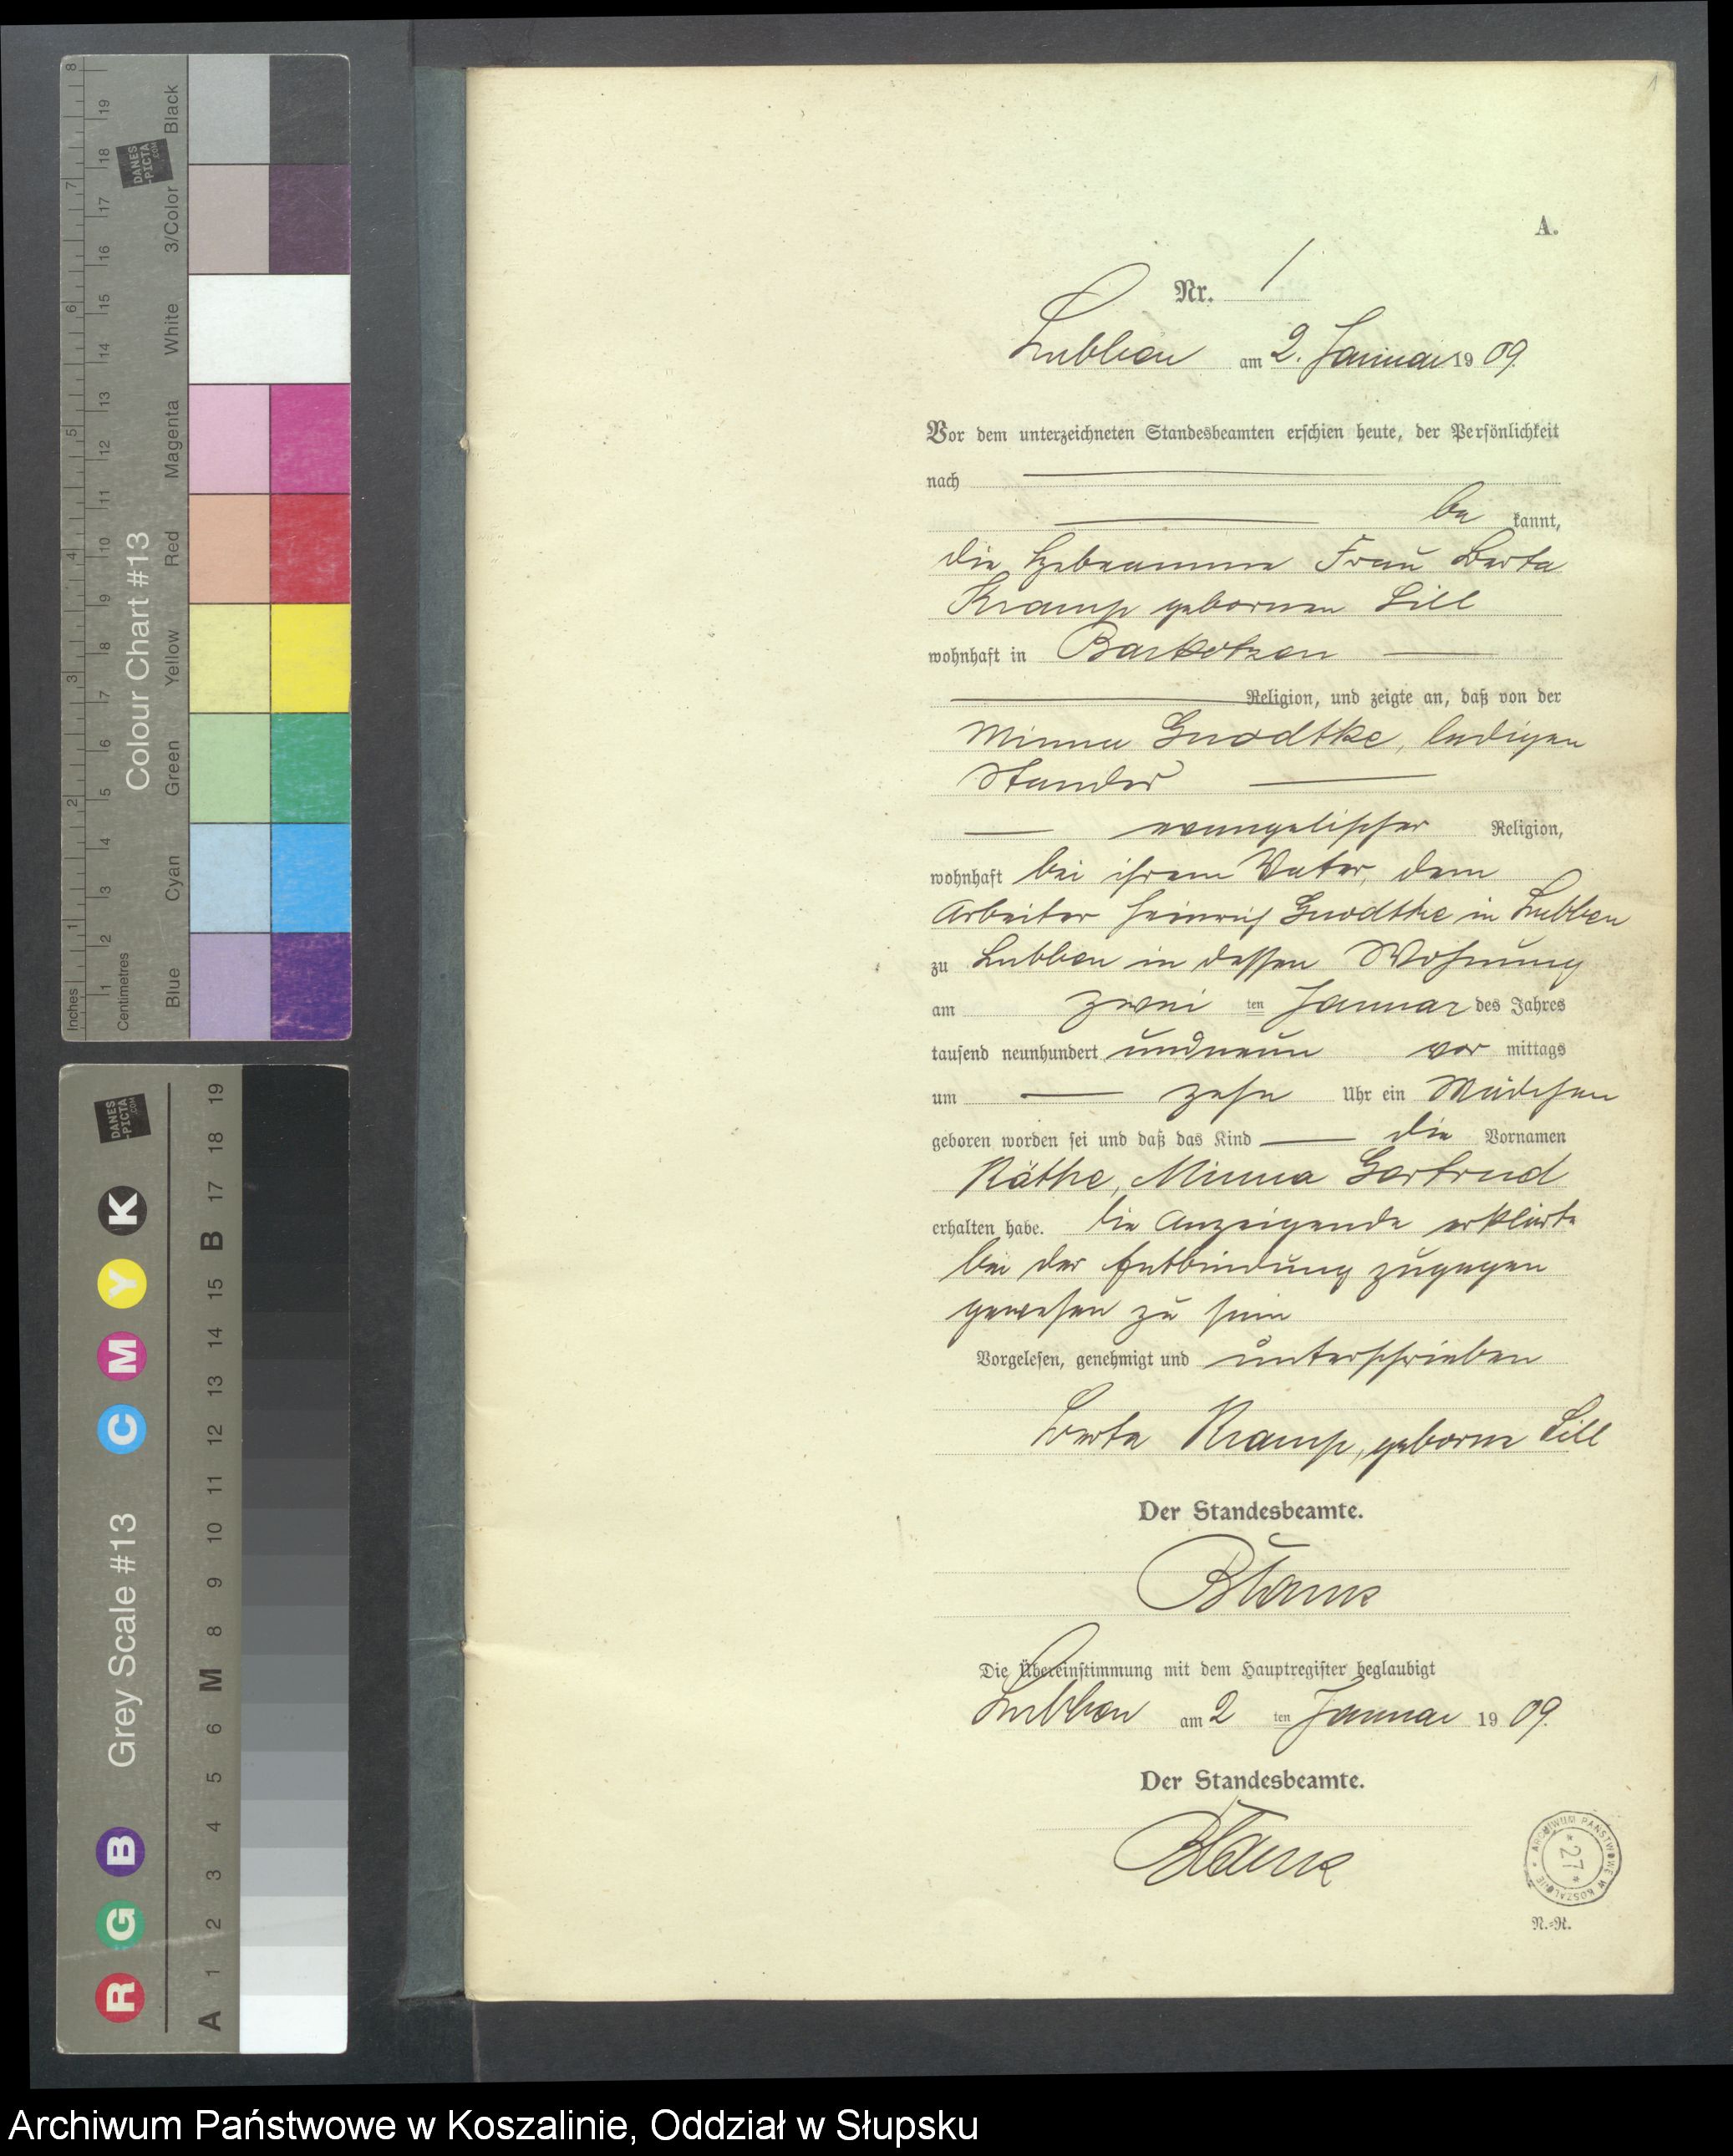 A.
Nr. 1
Lubben am 2. Januar 1909.
Vor dem unterzeichneten Standesbeamten erschien heute, der Persönlichkeit
nach
be kannt,
die Hebeamme Frau Berta
Kramp geborenen Lill
wohnhaft in Bartkotzen
Religion, und zeigte an, daß von der
Minna Gnodtke, ledigen
Standes
evangelischer Religion,
wohnhaft bei ihrem Vater, dem
Arbeiter Heinrich Gnodtke in Lubben
zu Lubben in dessen Wohnung
am zwei ten Januar des Jahres
tausend neunhundert undneun vor mittags
um zehn Uhr ein Mädchen
geboren worden sei und daß das Kind die Vornamen
Käthe, Minna Gertrud
erhalten habe. Die Anzeigende erklärte
bei der Entbindung zugegen
gewesen zu sein
Vorgelesen, genehmigt und unterschrieben
Berta Kramp, geborne Lill
Der Standesbeamte.
Die Übereinstimmung mit dem Hauptregister beglaubigt
Lubben am 2 ten Januar 1909.
Der Standesbeamte.
ARCHIWUM PAŃSTWOWE W KOSZALINIE
* 27 *
N.-R.
1
Colour Chart #13
Inches
Centimetres
Blue Cyan Green Yellow Red Magenta White 3/Color Black
1 2 3 4 5 6 7 8
1 2 3 4 5 6 7 8 9 10 11 12 13 14 15 16 17 18 19
DANES-PICTA.COM
Grey Scale #13
R G B C M Y K
A 1 2 3 4 5 6 M 8 9 10 11 12 13 14 15 B 17 18 19
DANES-PICTA.COM
Archiwum Państwowe w Koszalinie, Oddział w Słupsku